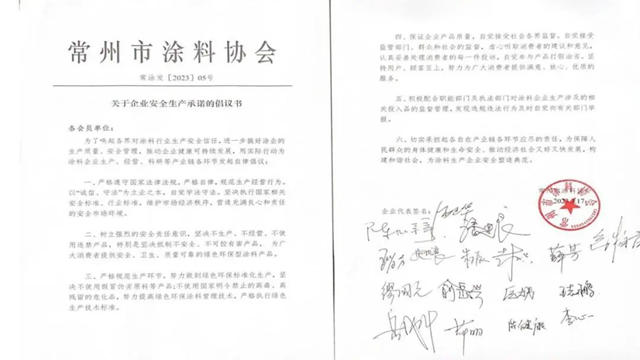 常州市涂料协会
常涂发【2023】05号
关于企业安全生产承诺的倡议书
各会员单位：
为了唤起各界对涂料行业生产安全信任，进一步搞好涂企的
生产质量，安全管理，推动企业健康可持续发展，用实际行动为
涂料企业生产、经营、科研等产业链各环节发起自律倡议：
一、严格遵守国家法律法规，严格自律，规范生产经营行为，
以“诚信、守法”为立业之本，自觉学法守法，坚决执行国家相关安
全标准、行业标准，维护市场经济秩序，营造充满良心和责任
的安全市场环境。
二、树立强烈的安全责任意识，坚决不生产、不经营、不使
用违禁产品，特别是坚决抵制不安全、不可控有害产品，为广
大消费者提供安全、卫生、质量可靠的绿色环保型涂料产品。
三、严格规范生产环节，努力做到绿色环保标准化生产，坚
决不使用假冒伪劣原料等产品;不使用国家明令禁止的高毒、高
残留的危化品，努力提高绿色环保涂料管理技术，严格执行绿色
生产技术标准。
四、保证企业产品质量，自觉接受社会各界监督，自觉接受
监管部门、群众和社会的监督，虚心听取消费者的建议和意见，
认真妥善处理消费者的每一件投诉，自觉参与产品打假治劣，坚
持用户、顾客至上，努力为广大消费者提供满意、放心、优质的
服务。
五、积极配合职能部门及执法部门对涂料企业生产涉及的相
关投入品的监督管理，发现违规违法行为及时自觉向有关部门举
报。
六、切实承担起各自在产业链各环节应尽的责任，为保障人
民群众的身体健康和生命安全，推动经济社会又好又快发展，构
建和谐社会，为涂料生产企业安全塑造典范。
常州市涂料协会
企业代表签名：